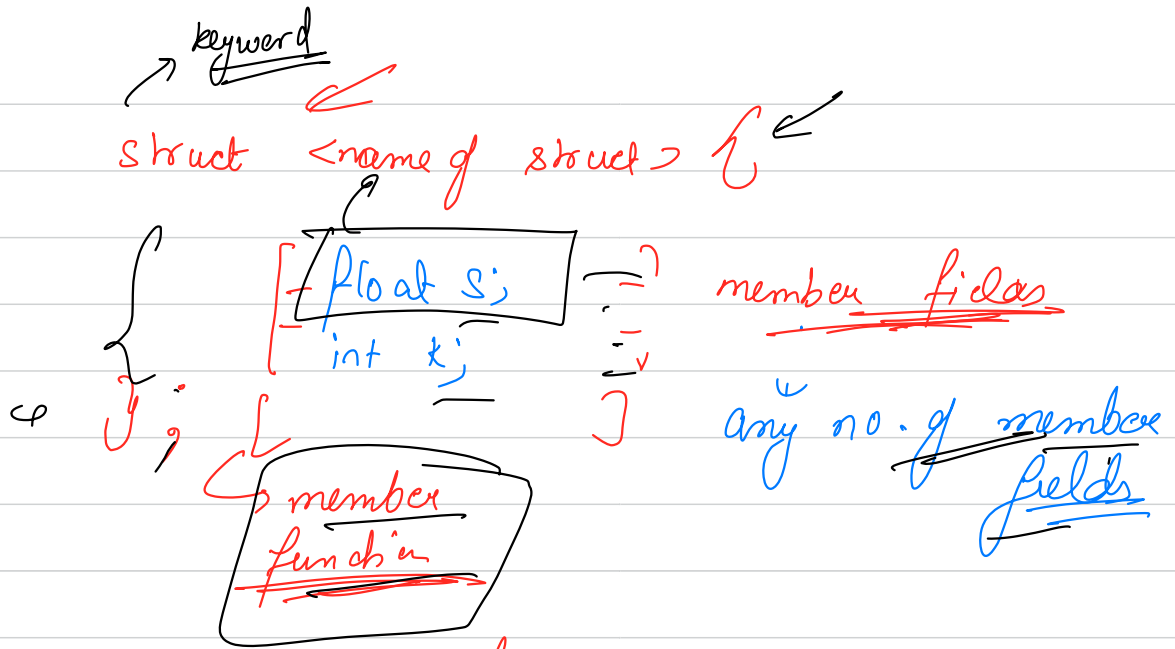 keyword
struct <name of struct> {
float s; member fields
int k;
}; any no. of member
fields
member
function